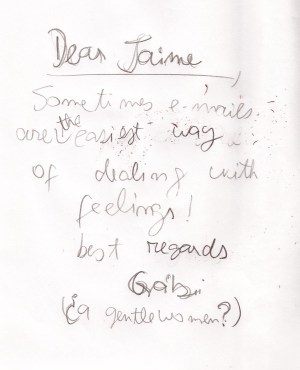 Dear Jaime,
Sometimes e-mails
are the easiest way
of dealing with
feelings!
best regards
Gabi
(a gentlewomen?)